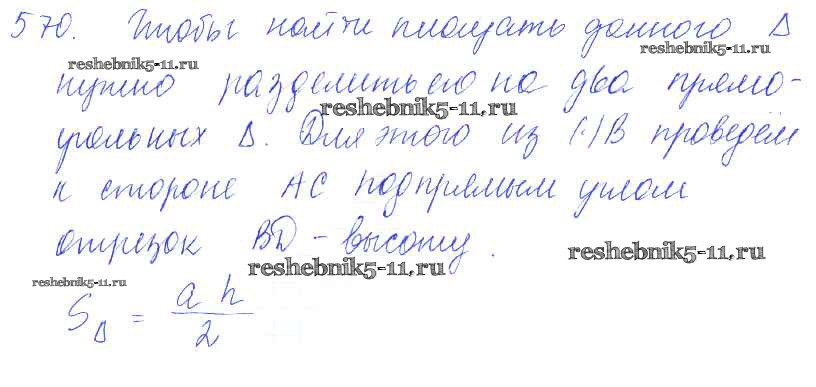 570. Чтобы найти площадь данного Δ
reshebnik5-11.ru
reshebnik5-11.ru
нужно разделить его на два прямо-
reshebnik5-11.ru
угольных Δ. Для этого из (·)В проведём
к стороне АС под прямым углом
отрезок BD - высоту.
reshebnik5-11.ru
reshebnik5-11.ru
reshebnik5-11.ru
S_Δ = a h / 2